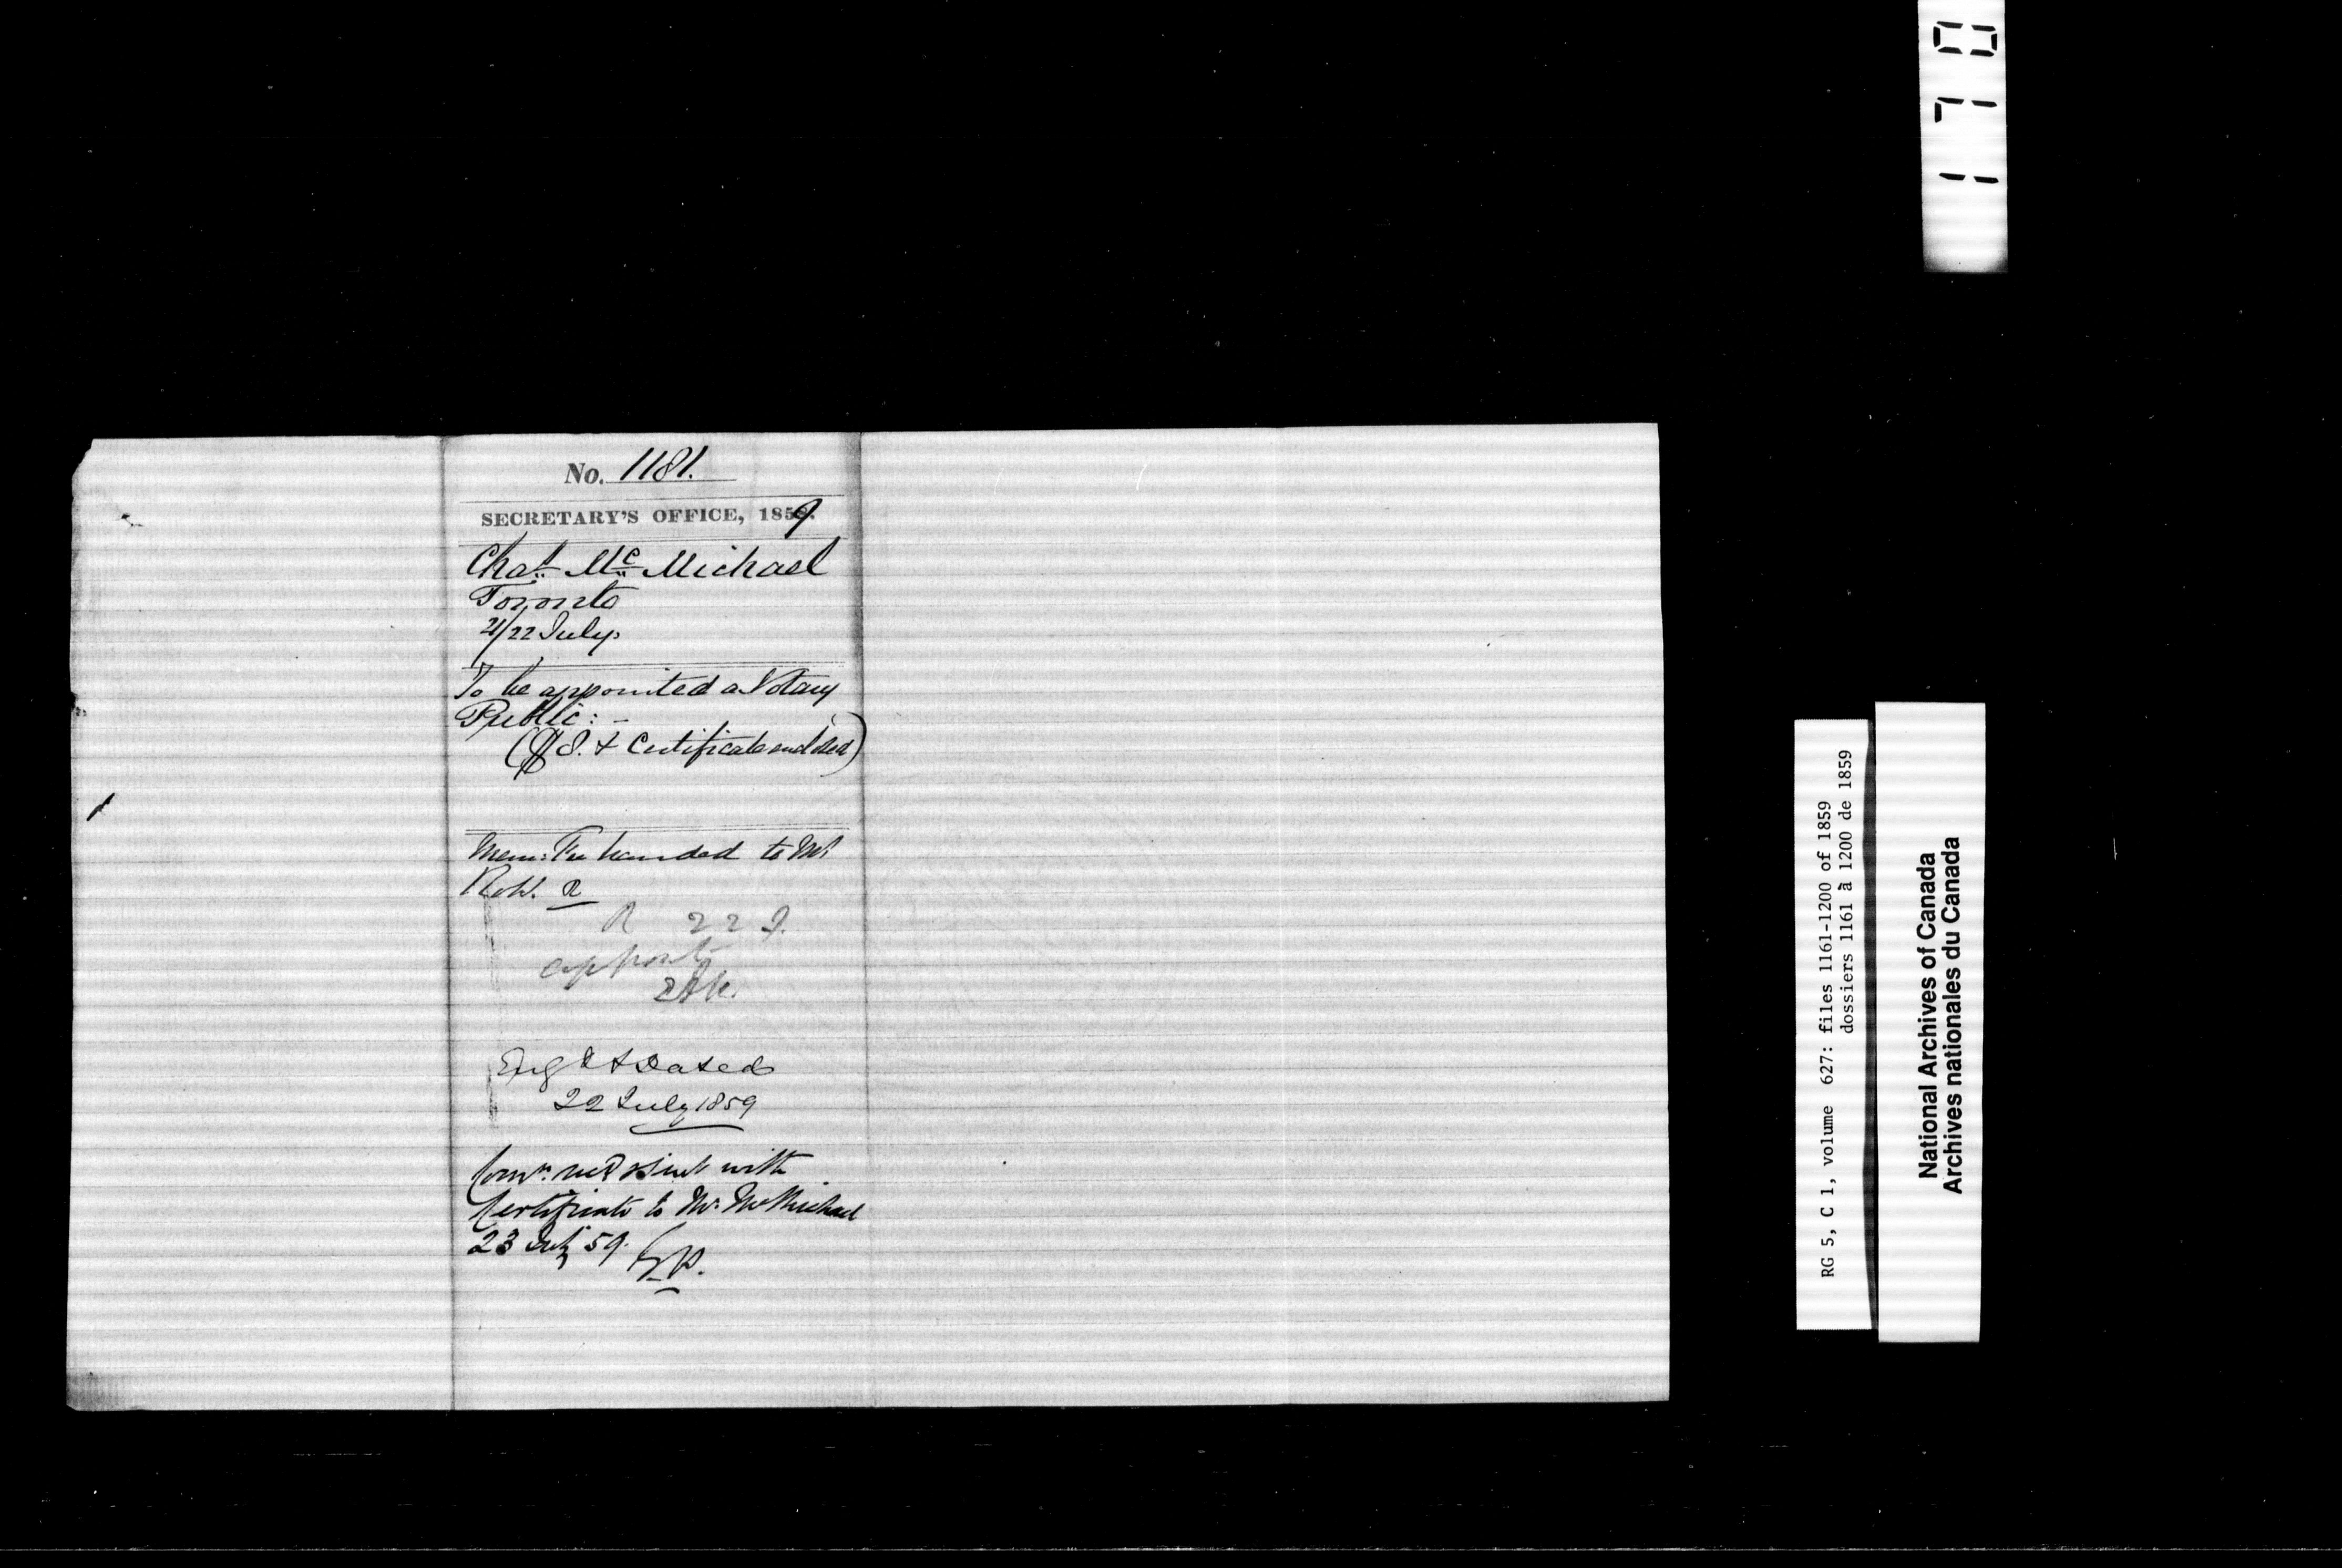 No. 1181.
SECRETARY'S OFFICE, 1859.
Chas Mc Michael
Toronto
21/22 July.
To be appointed a Notary
Public: -
($8. & Certificate enclosed)
Mem: Fee handed to Mr
R
R 22 J.
appont
Engd & Dated
22 July 1859
Comn. recd & sent with
Certificate to Mr. McMichael
23 July 59.
170
RG 5, C 1, volume 627: files 1161-1200 of 1859
dossiers 1161 à 1200 de 1859
National Archives of Canada
Archives nationales du Canada